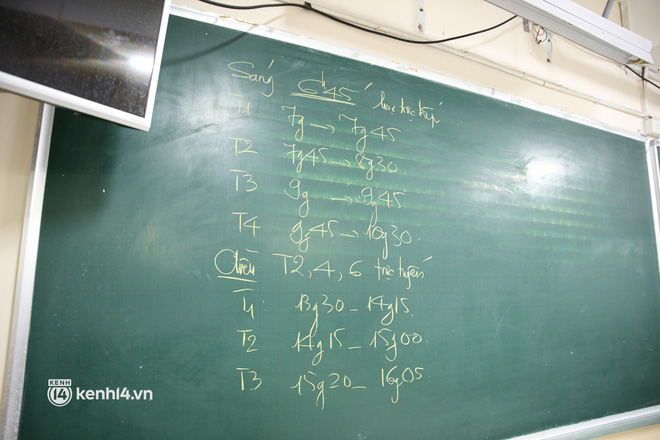 Sáng 6g45 học trực tiếp
T1 7g → 7g45
T2 7g45 → 8g30
T3 9g → 9g45
T4 9g45 → 10g30
Chiều T2, 4, 6 trực tuyến
T1 13g30 - 14g15
T2 14g15 - 15g00
T3 15g20 - 16g05
KENH 14 kenh14.vn